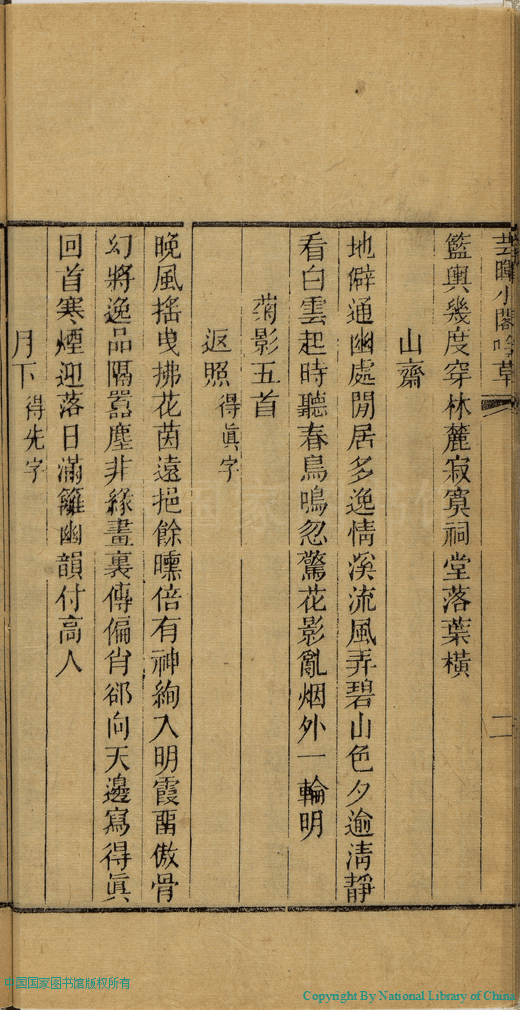 芸暉小閣吟草
二
籃輿幾度穿林麓寂寞祠堂落葉橫
山齋
地僻通幽處閒居多逸情溪流風弄碧山色夕逾淸靜
看白雲起時聽春鳥鳴忽驚花影亂烟外一輪明
菊影五首
返照得眞字
晚風搖曳拂花茵遠挹餘曛倍有神絢入明霞畱傲骨
幻將逸品隔囂塵非緣畫裏傳偏肖郤向天邊寫得眞
回首寒煙迎落日滿籬幽韻付高人
月下得先字
中国国家图书馆版权所有
Copyright By National Library of China